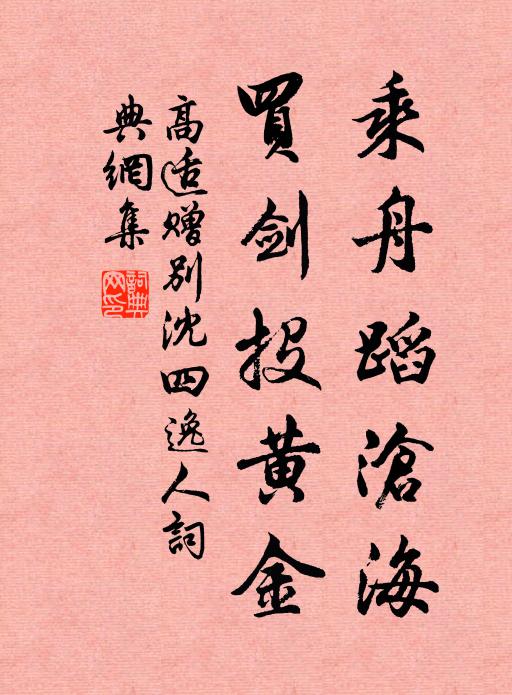 乘舟蹈滄海
買劍投黄金
高适赠别沈四逸人詞
典網集
詞典网印